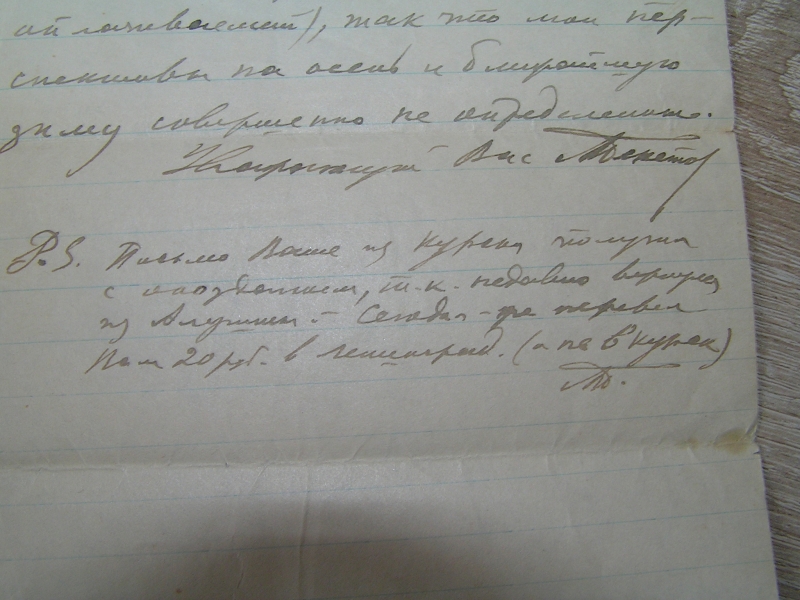 оплачиваемый), так что мои пер-
спективы на осень и ближайшую
зиму совершенно не определенны.
Вас
P.S. Письмо Ваше из Курска получил
с опозданием, т.к. недавно вернулся
из Алушты. - Сегодня-же перевел
Вам 20 руб. в Ленинград. (а не в Курск)